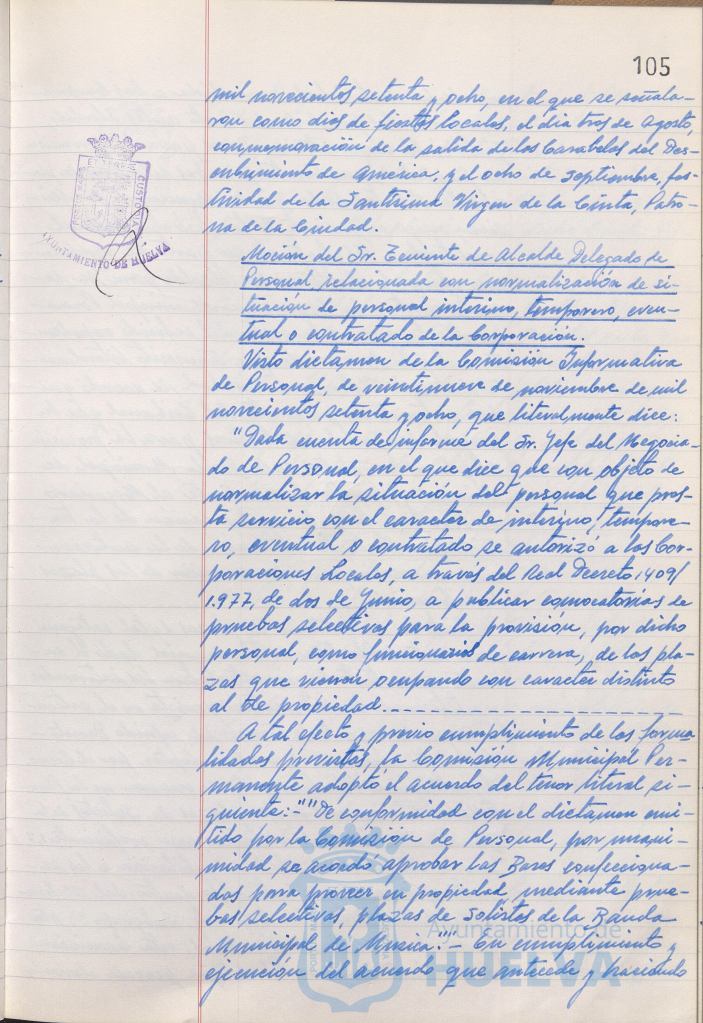 105
mil novecientos setenta y ocho, en el que se señala-
ron como dias de fiestas locales, el dia tres de Agosto,
conmemoración de la salida de las Carabelas del Des-
cubrimiento de America, y el ocho de Septiembre, fes-
tividad de la Santisima Virgen de la Cinta, Patro-
na de la Ciudad.
Moción del Sr. Teniente de Alcalde Delegado de
Personal relacionada con normalización de si-
tuación de personal interino, temporero, even-
tual o contratado de la Corporación.
Visto dictamen de la Comisión Informativa
de Personal, de veintinueve de noviembre de mil
novecientos setenta y ocho, que literalmente dice:
"Dada cuenta de informe del Sr. Jefe del Negocia-
do de Personal, en el que dice que con objeto de
normalizar la situación del personal que pres-
ta servicio con el caracter de interino, tempore-
ro, eventual o contratado se autorizó a las Cor-
poraciones Locales, a través del Real Decreto 1409/
1.977, de dos de Junio, a publicar convocatorias de
pruebas selectivas para la provision, por dicho
personal, como funcionarios de carrera, de las pla-
zas que vienen ocupando con caracter distinto
al de propiedad.
A tal efecto y previo cumplimiento de las forma-
lidades previstas, la Comisión Municipal Per-
manente adoptó el acuerdo del tenor literal si-
guiente:-""De conformidad con el dictamen emi-
tido por la Comisión de Personal, por unani-
midad se acordó aprobar las Bases confecciona-
das para proveer en propiedad mediante prue-
bas selectivas, plazas de Solistas de la Banda
Municipal de Musica.""- En cumplimiento y
ejecución del acuerdo que antecede y haciendo
CUSTODIA
AYUNTAMIENTO DE HUELVA
Ayuntamiento de
HUELVA